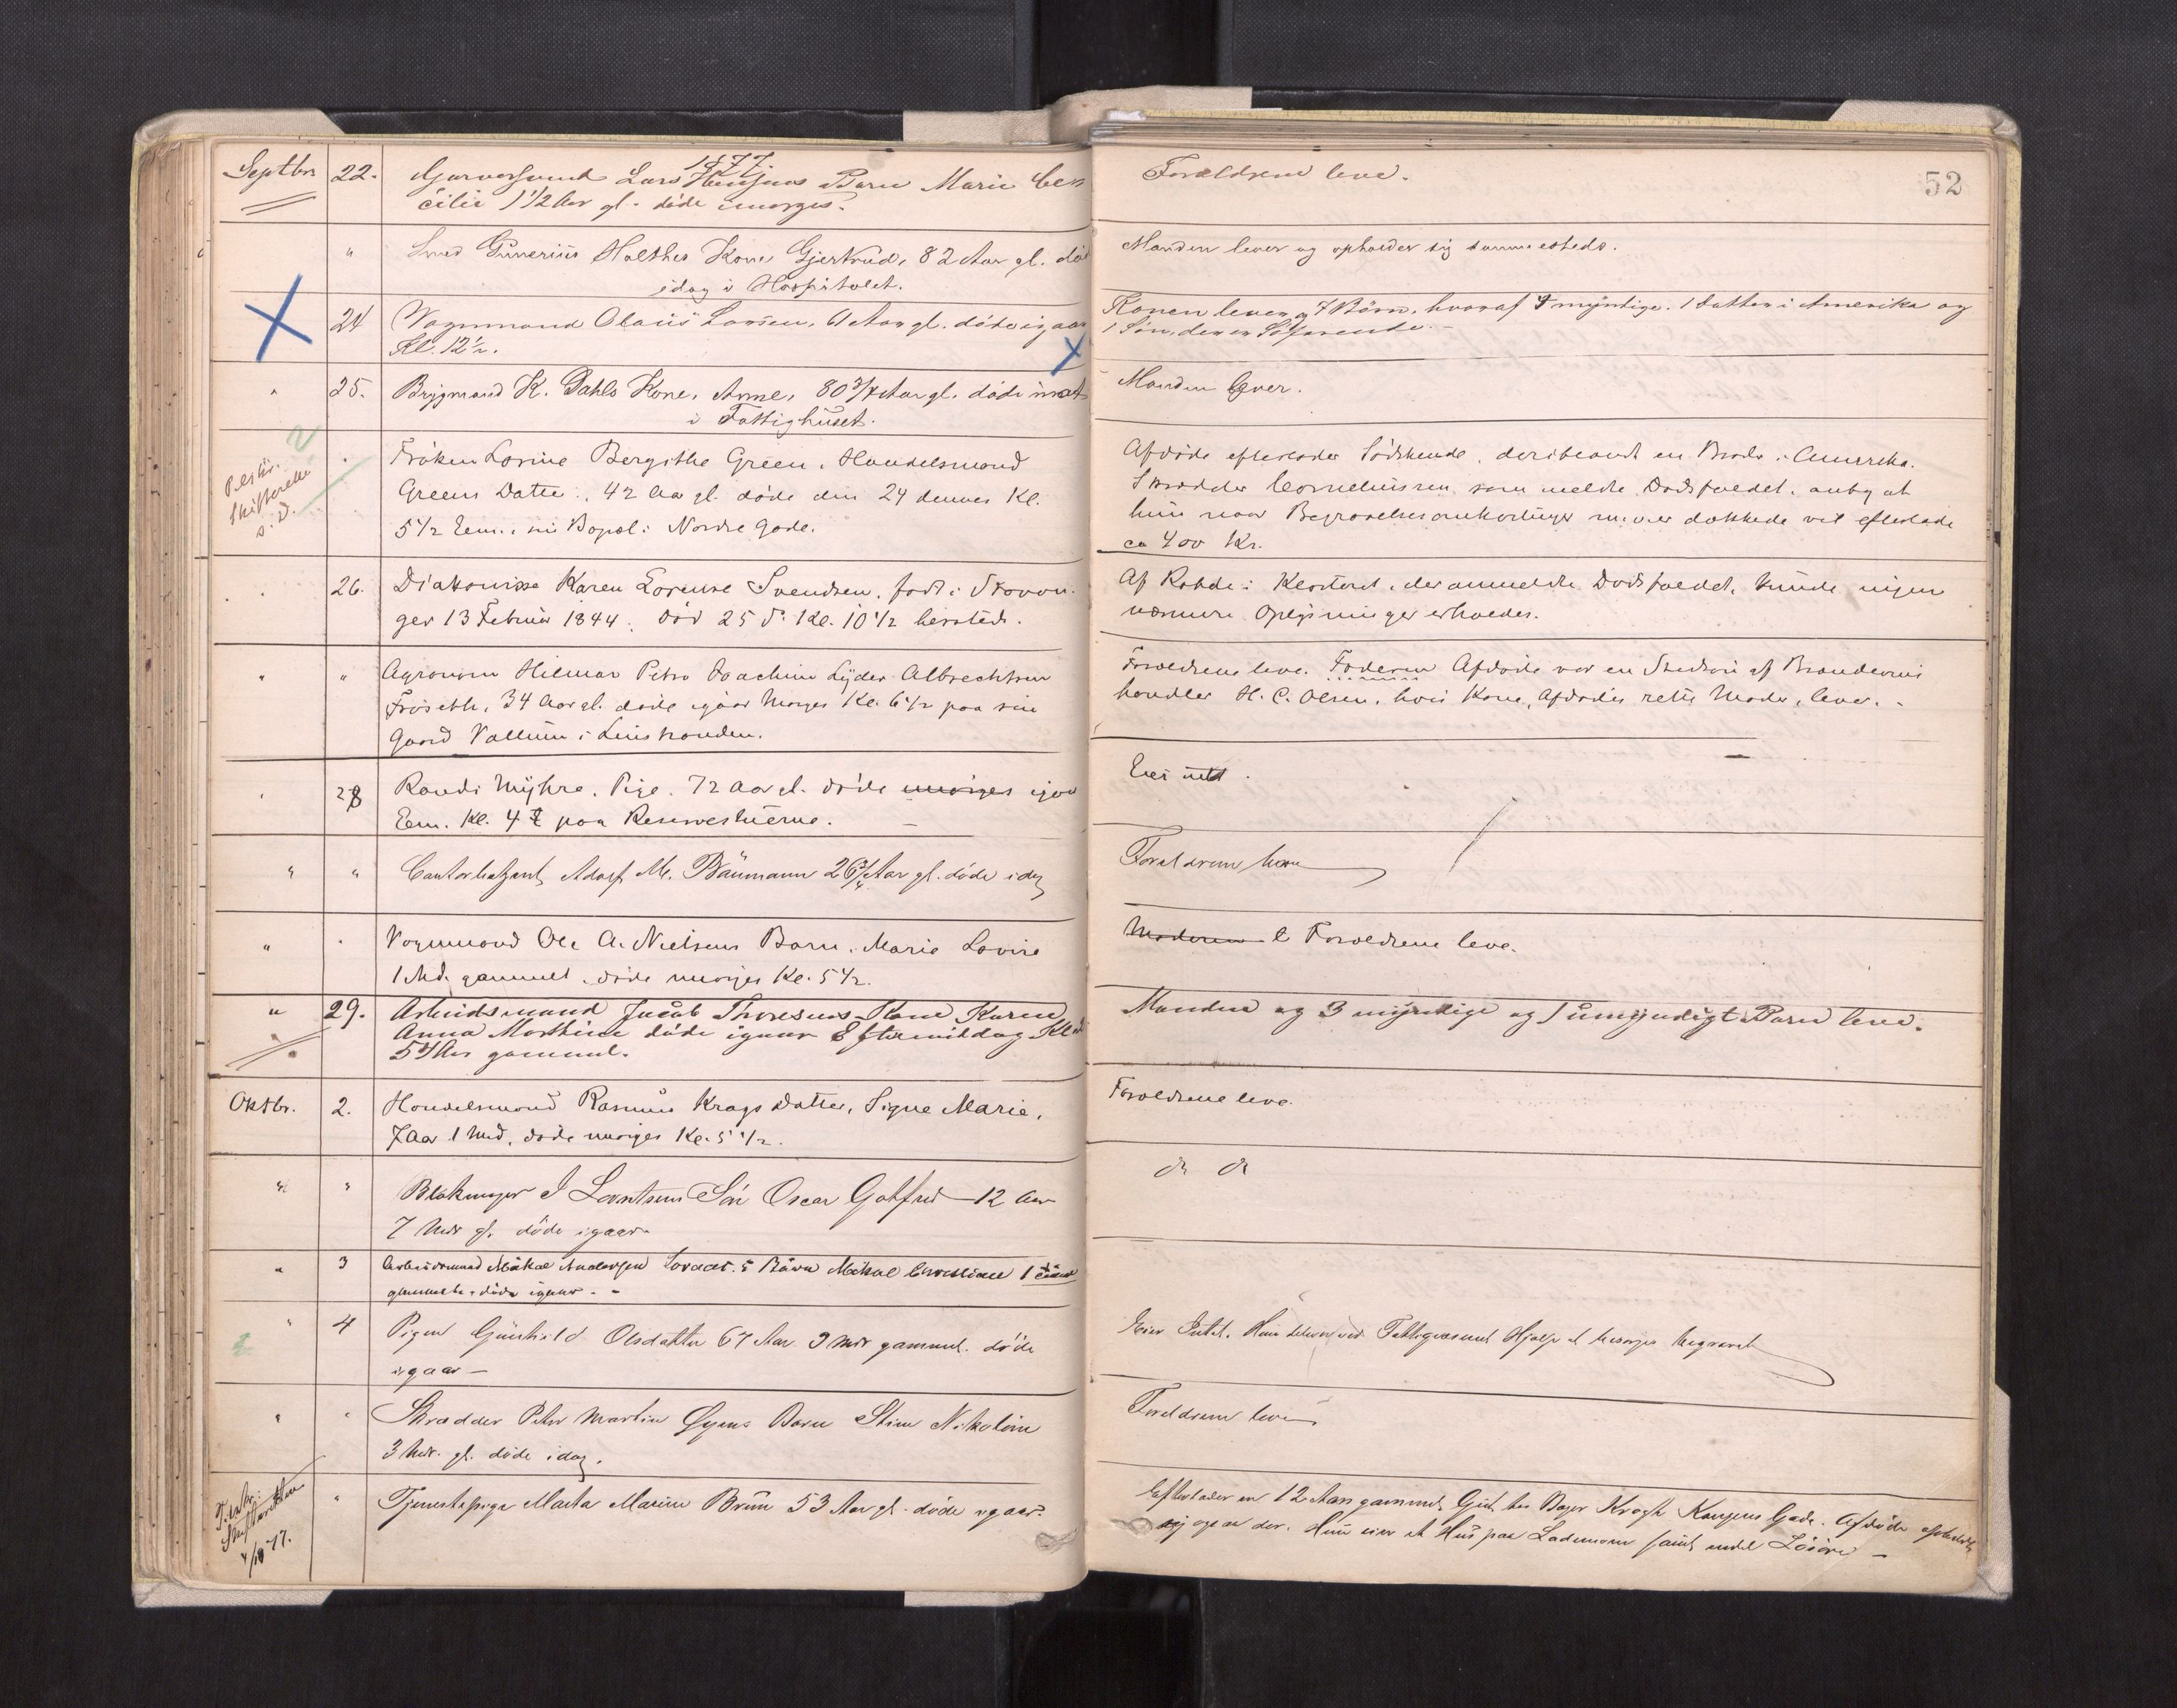 1877.
52
Septbr 22. Garversvend Lars Hansens Barn Marie Ce-
cilie 1 1/2 Aar gl. døde imorges.
Forældrene leve.
" Smed Gunerius Holthes Kone Gjertrud, 82 Aar gl. død
idag i Hospitalet.
Manden lever og opholder sig sammesteds.
24 Vognmand Olaus Larsen, 61 Aar gl. døde igaar
Kl. 12 1/2.
Konen lever og 7 Børn, hvoraf 5 myndige. 1 Datter i Amerika og
1 Søn, der er Søfarende.
" 25. Brygmand K. Dahls Kone, Anne, 80 3/4 Aar gl. døde inat
i Fattighuset.
Manden lever.
Skifteretten
s. D.
Frøken Lovine Bergithe Green, Handelsmand
Greens Datter, 42 Aar gl. døde den 24 dennes Kl.
5 1/2 Eem. i sin Bopæl i Nordre Gade.
Afdøde efterlader Sødskende, deriblandt en Broder i Amerika.
Skrædder Corneliussen som meldte Dødsfaldet, antog at
hun naar Begravelsesomkostninger dækkede vil efterlade
ca 400 Kr.
26. Diakonisse Karen Lorense Svendsen, født i Stavan-
ger 13 Februar 1844, død 25 d. Kl. 10 1/2 hersteds.
Af Rohde i Klosteret, der anmeldte Dødsfaldet, kunde ingen
nærmere Oplysninger erholdes.
" " Agronom Hilmar Petro Joachim Lyder Albrechtsen
Frøseth, 34 Aar gl. døde igaar Morges Kl. 6 1/2 paa sin
Gaard Vallum i Leinstranden.
Forældrene leve. Faderen Afdøde var en Stedsøn af Brændevins
handler H. C. Olsen, hvis Kone, Afdødes rette Moder, lever.
28 Randi Myhre, Pige, 72 Aar gl. døde imorges igaar
Eem. Kl. 4 paa Reservestuerne.
Eier intet.
" " Contorbetjent Adolf M. Baumann 26 3/4 Aar gl. døde idag
Forældrene leve
" " Vognmand Ole A. Nielsens Barn, Marie Lovise
1 Md. gammel, døde imorges Kl. 5 1/2.
Moderen l Forældrene leve.
" 29. Arbeidsmand Jacob Thoresens Kone Karen
Anna Marthine døde igaar Eftermiddag Kl
54 Aar gammel.
Manden og 3 myndige og 1 umyndigt Barn leve.
Oktbr. 2. Handelsmand Rasmus Krags Datter, Signe Marie,
7 Aar 1 Md, døde imorges Kl. 5 1/2.
Forældrene leve.
" " Blikmager I Lorentsens Søn Oscar Gotfred 12 Aar
7 Mdr gl. døde igaar
do do
" 3 Arbeidsmand Mikal Andersen Barn Mikal Christian 1
gammelt døde igaar
" 4 Pigen Gunhild Olsdatter 67 Aar 9 Mdr gammel. døde
igaar
Eier Intet. Hun ved Fattigvæsenets Hjælp besørges begravet
" " Skrædder Peter Martin Øyens Barn Stine Nikoline
3 Mdr. gl. døde idag.
Forældrene leve
Tilskr.
Skifteretten
4/10 77.
" Tjenestepige Marta Marine Bruun 53 Aar gl. døde igaar.
Efterlader en 12 Aar gammel Gut hos Bager Krogh Kongens Gade. Afdøde opholdt
sig ogsaa der. Hun eier et Hus paa Lademoen samt endel Løsøre